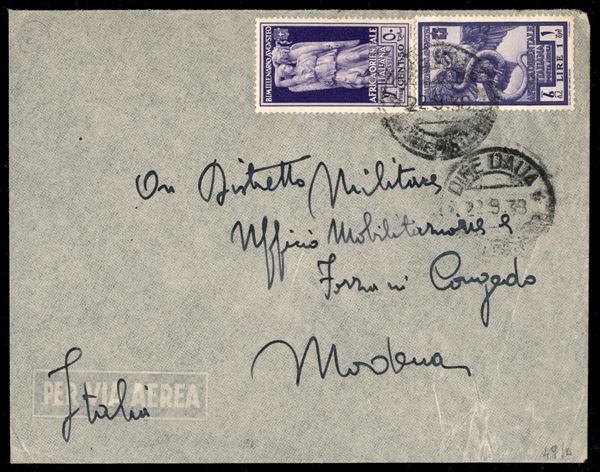 BIMILLENARIO AVGVSTEO
AFRICA ORIENTALE
ITALIANA
CENT. 50
AFRICA ORIENTALE
LIRE 1
22.9.38
DIRE DAUA
22.9.38
On Distretto Militare
Ufficio Mobilitazione e
Forza in Congedo
Modena
Italia
PER VIA AEREA